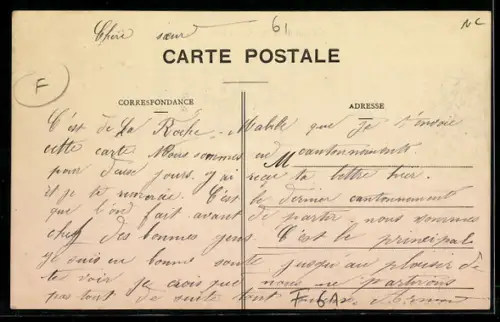 61
NC
Chère sœur
CARTE POSTALE
F
CORRESPONDANCE
ADRESSE
C'est de La Roche-Mabile que je t'envoie
cette carte. Nous sommes en cantonnement
pour deux jours. J'ai reçu ta lettre hier
et je te remercie. C'est le dernier cantonnement
que l'on fait avant de partir. nous sommes
chez des bonnes gens. C'est le principal
je suis en bonne santé jusqu'au plaisir de
te voir je crois que nous ne partirons
pas tout de suite tout
F 61